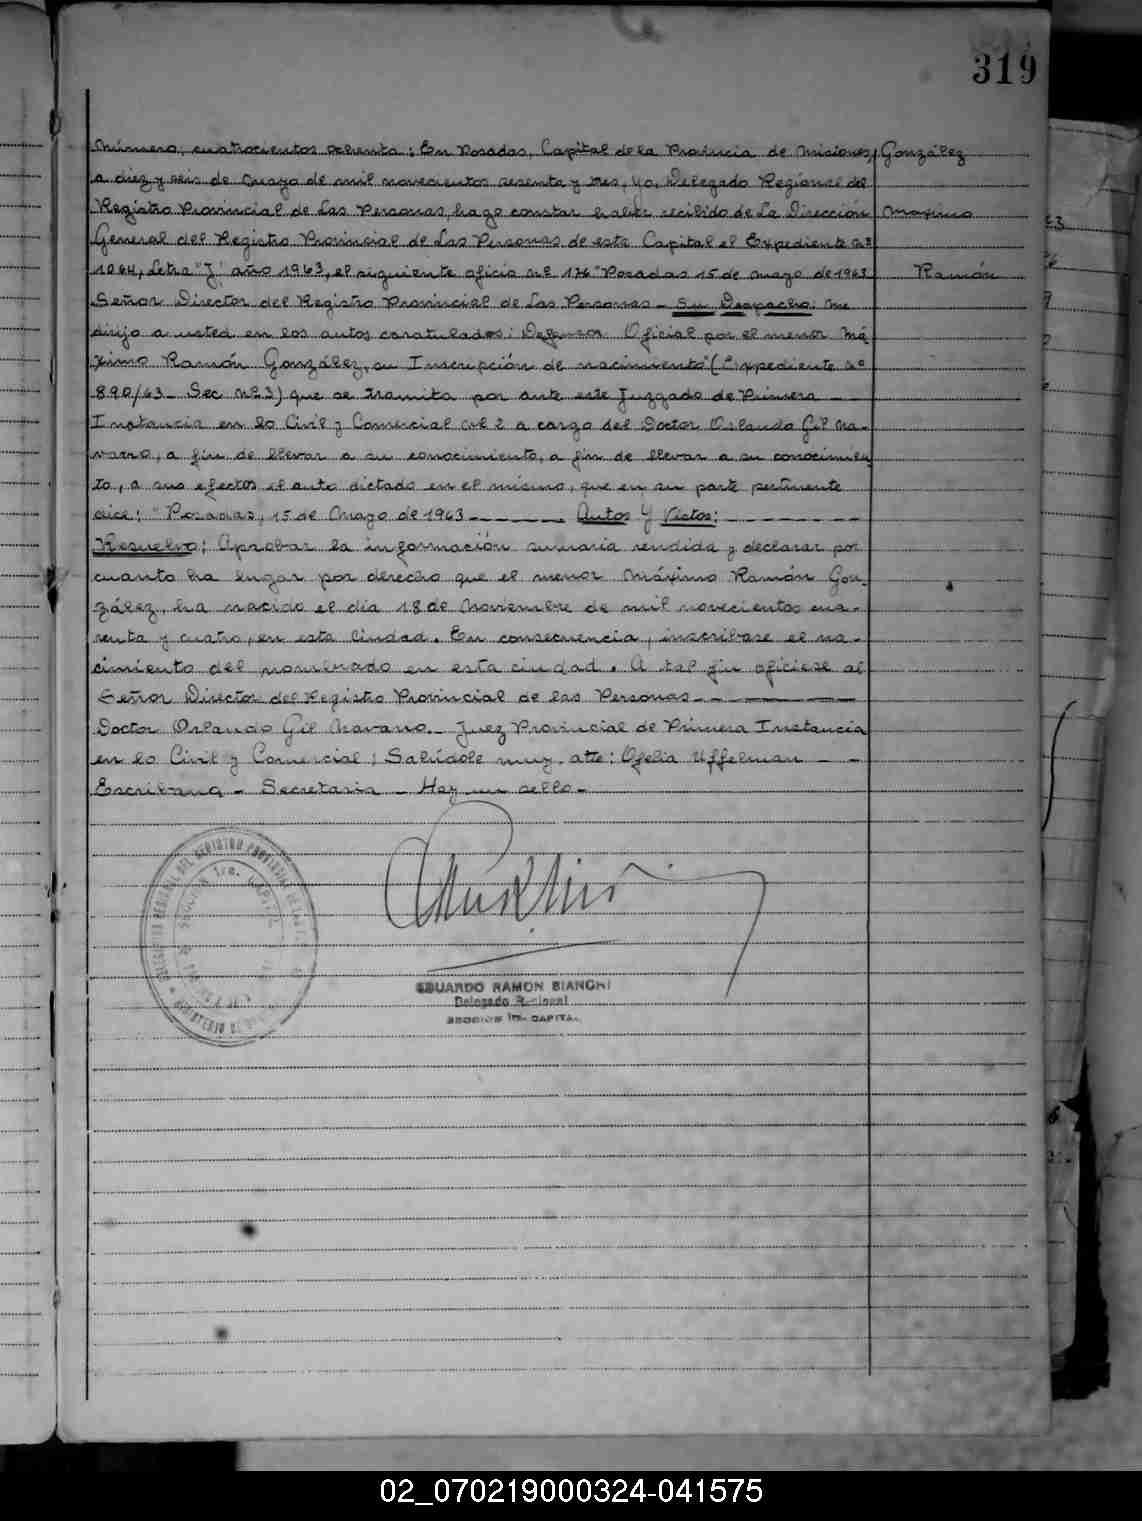 319
Número, cuatrocientos ochenta: En Posadas, Capital de la Provincia de Misiones, González
a diez y seis de Mayo de mil novecientos sesenta y tres, yo, Delegado Regional del
Registro Provincial de las Personas, hago constar haber recibido de la Dirección Máximo
General del Registro Provincial de Las Personas de esta Capital el Expediente nº
1064, Letra "J", año 1963, el siguiente oficio nº 176 "Posadas 15 de mayo de 1963 Ramón
Señor Director del Registro Provincial de Las Personas - Su Despacho: me
dirijo a usted en los autos caratulados: Defensor Oficial por el menor Má
ximo Ramón González, su Inscripción de nacimiento" (Expediente nº
890/63 - Sec. nº 3) que se tramita por ante este Juzgado de Primera -
Instancia en lo Civil y Comercial nº 2 a cargo del Doctor Orlando Gil Na-
varro, a fin de llevar a su conocimiento, a fin de llevar a su conocimien
to, a sus efectos el auto dictado en el mismo, que en su parte pertinente
dice: "Posadas, 15 de Mayo de 1963 - - - - - - Autos y Vistos: - - - - - -
Resuelvo: Aprobar la información sumaria rendida y declarar por
cuanto ha lugar por derecho que el menor Máximo Ramón Gon-
zález, ha nacido el día 18 de Noviembre de mil novecientos cua-
renta y cuatro, en esta Ciudad. En consecuencia, inscríbase el na-
cimiento del nombrado en esta ciudad. A tal fin ofíciese al
Señor Director del Registro Provincial de las Personas - - - - - -
Doctor Orlando Gil Navarro. - Juez Provincial de Primera Instancia
en lo Civil y Comercial; Salúdole muy atte: Ofelia Uffelman - -
Escribana - Secretaria - Hay un sello -
EDUARDO RAMON BIANCHI
Delegado Regional
SECCION 1ra. CAPITAL
02_070219000324-041575